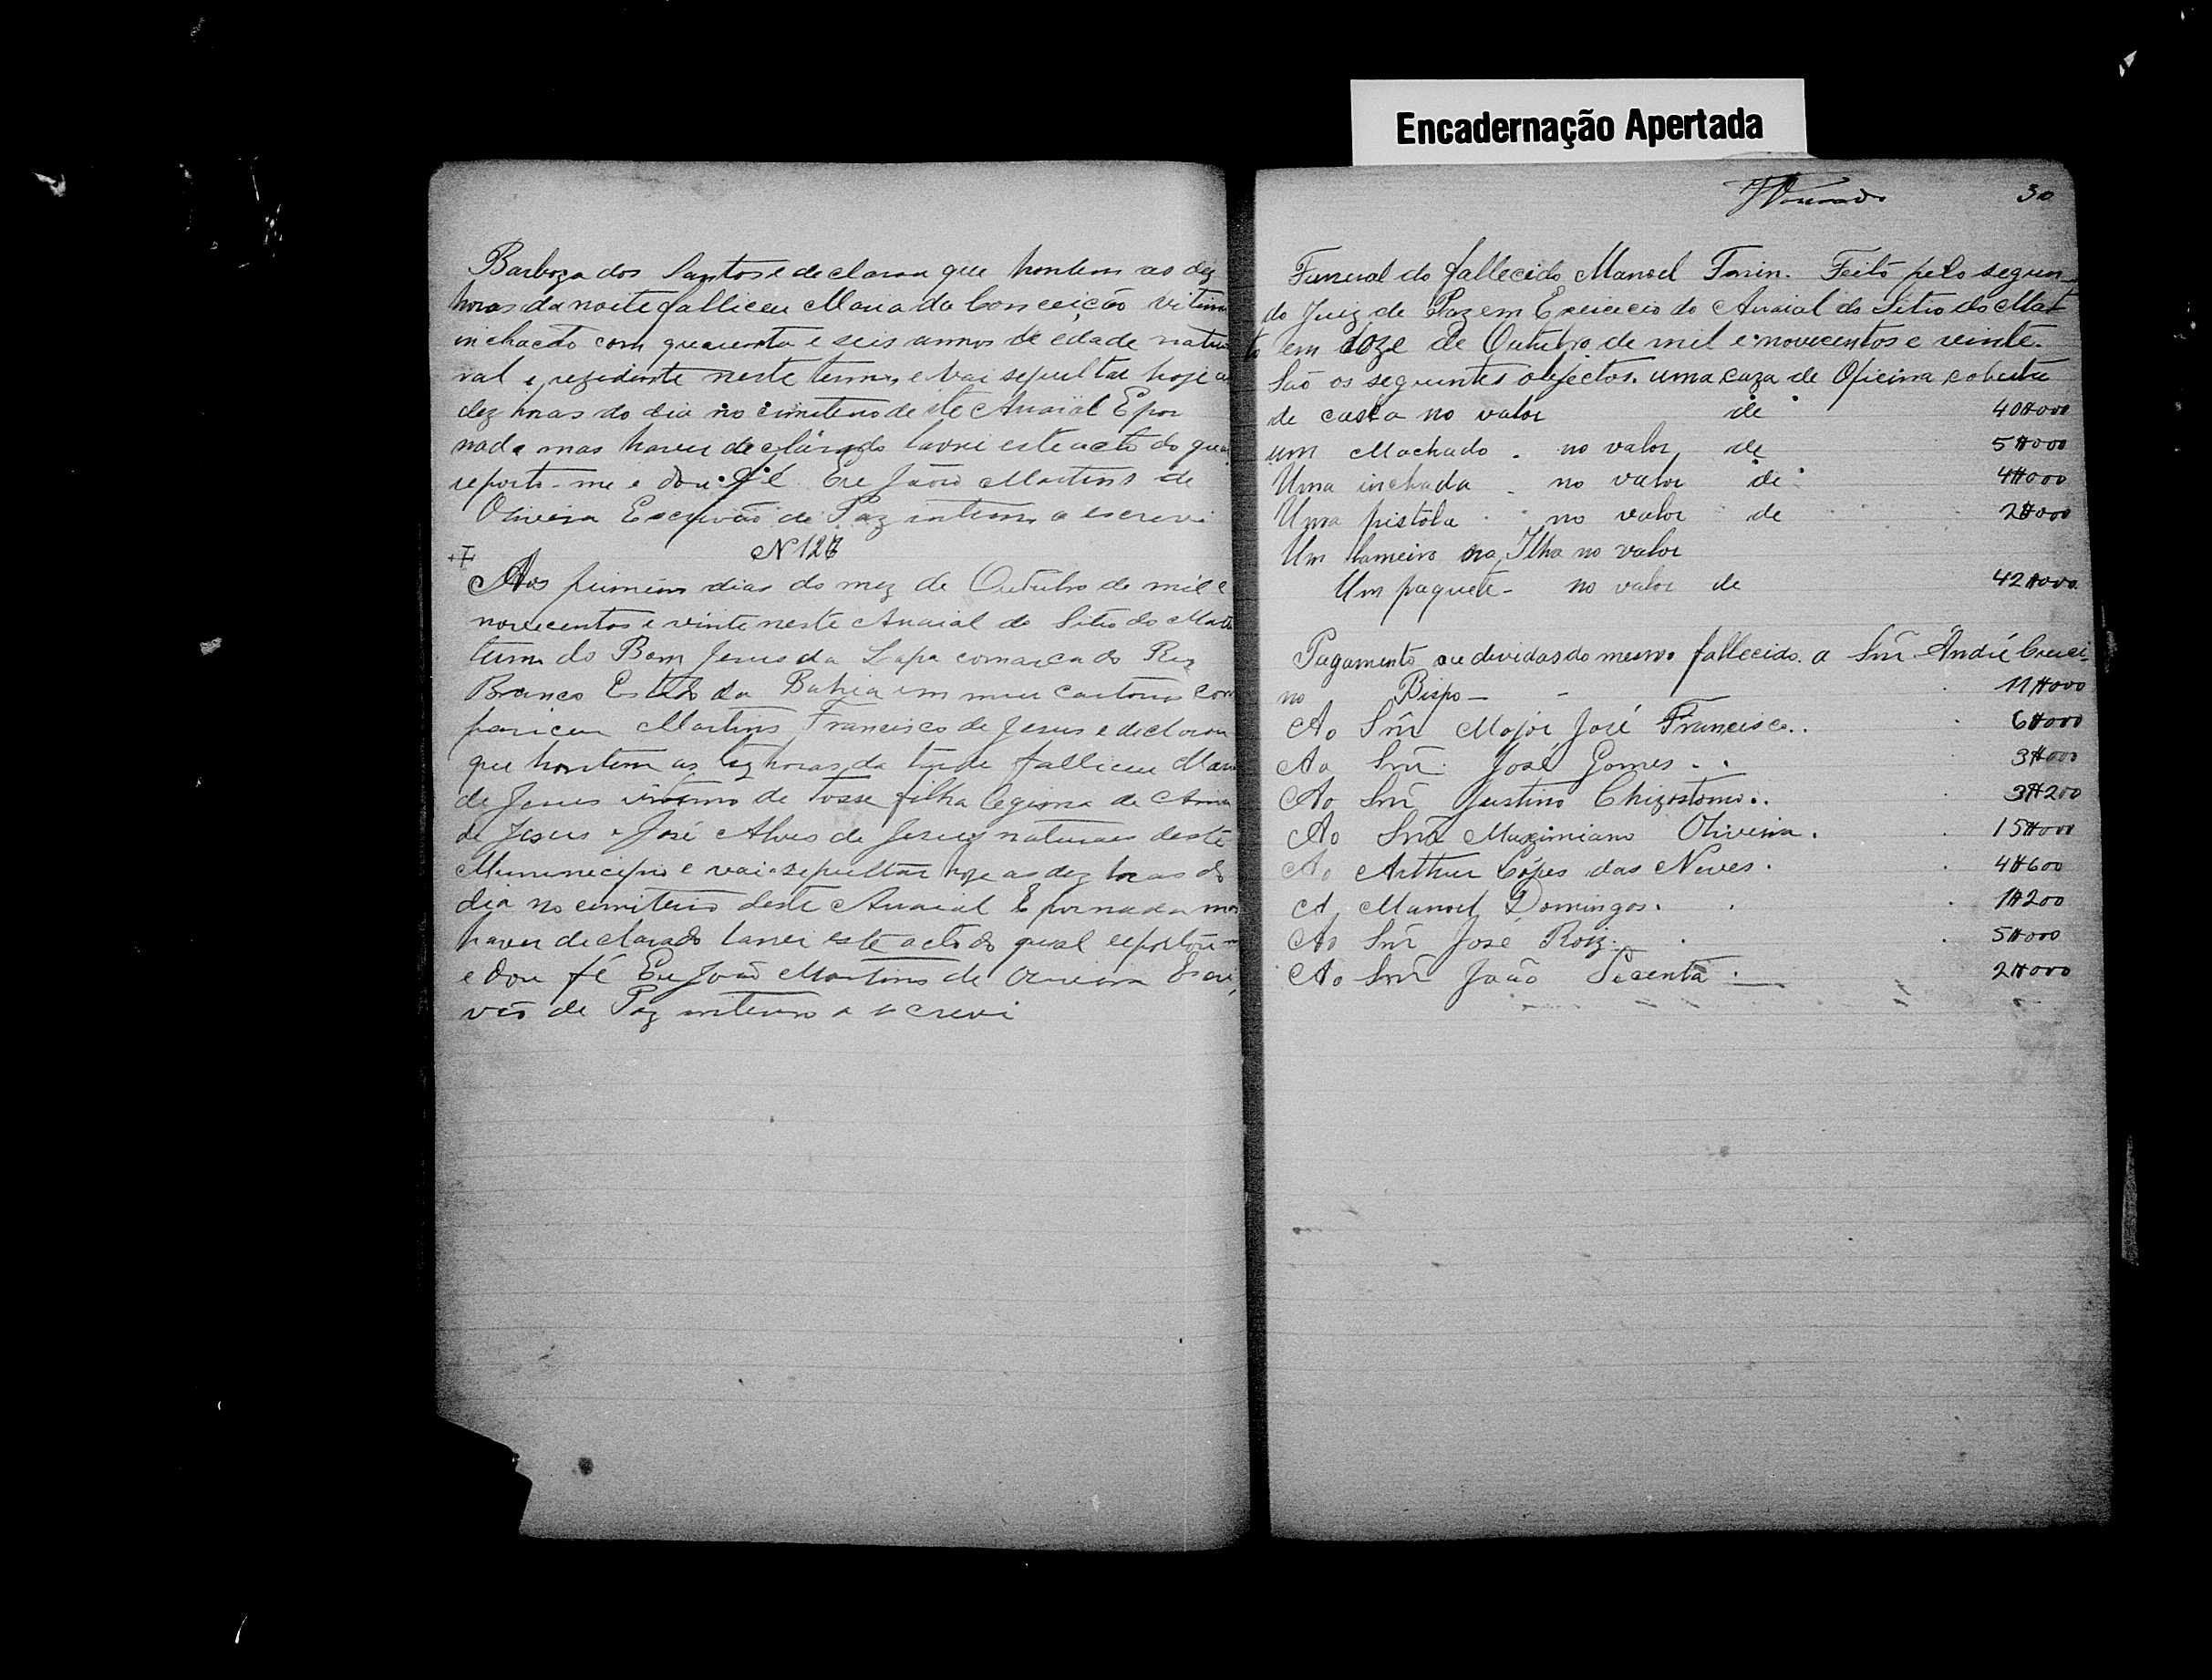 Encadernação Apertada
Barboza dos Santos e declarou que hontem as dez
horas da noite falliceu Maria da Conceição vitima
inchacão com quarenta e seis annos de edade natu
ral e rezidente neste termo, e vai sepultar hoje as
dez horas do dia no cimiterio deste Arraial E por
nada mas haver declarado lavrei este acto do qual
reporto-me e dou fé. Eu João Martins de
Oliveira Escrivão de Paz interino o escrevi
N 127
Aos primeiro dias do mez de Outubro de mil e
novecentos e vinte neste Arraial do Sitio do Matto
termo do Bom Jesus da Lapa comarca do Rio
Branco Estado da Bahia em meu cartorio com
pariceu Martins Francisco de Jesus e declarou
que hontem as tez horas da tarde falliceu Maria
de Jesus vitima de tosse filha legima de Anna
de Jesus e José Alves de Jesus naturaes deste
Mununicipio e vai sepultar hoje as dez horas do
dia no cimiterio deste Arraial E por nada mas
haver declarado lavrei este acto do qual reporto-me
e dou fé Eu João Martins de Oliveira Escri
vão de Paz interino o escrevi
30
Funeral do fallecido Manoel Feito pelo segun
do Juiz de Paz em Exercicio do Arraial do Sitio do Mat
to em doze de Outubro de mil e novecentos e veinte.
São os seguintes objectos. uma caza de Oficina coberta
de casca no valor de 40$000
um Machado. no valor de 5$000
Uma inchada. no valor de 4$000
Uma pistola no valor de 2$000
Um na Ilha no valor
Um paquete - no valor de 42$000
Pagamento ou dividas do mesmo fallecido. a Snr André Cruci-
no Bispo - 11$000
Ao Snr Major José Francisco.. 6$000
Ao Snr. José Gomes.. 3$000
Ao Snr Justino Chizostomo.. 3$200
Ao Snr Maximiano Oliveira. 15$000
Ao Arthur Lópes das Neves. 4$600
A Manoel Domingos. 1$200
Ao Snr José Roiz. 5$000
Ao Snr João 2$000